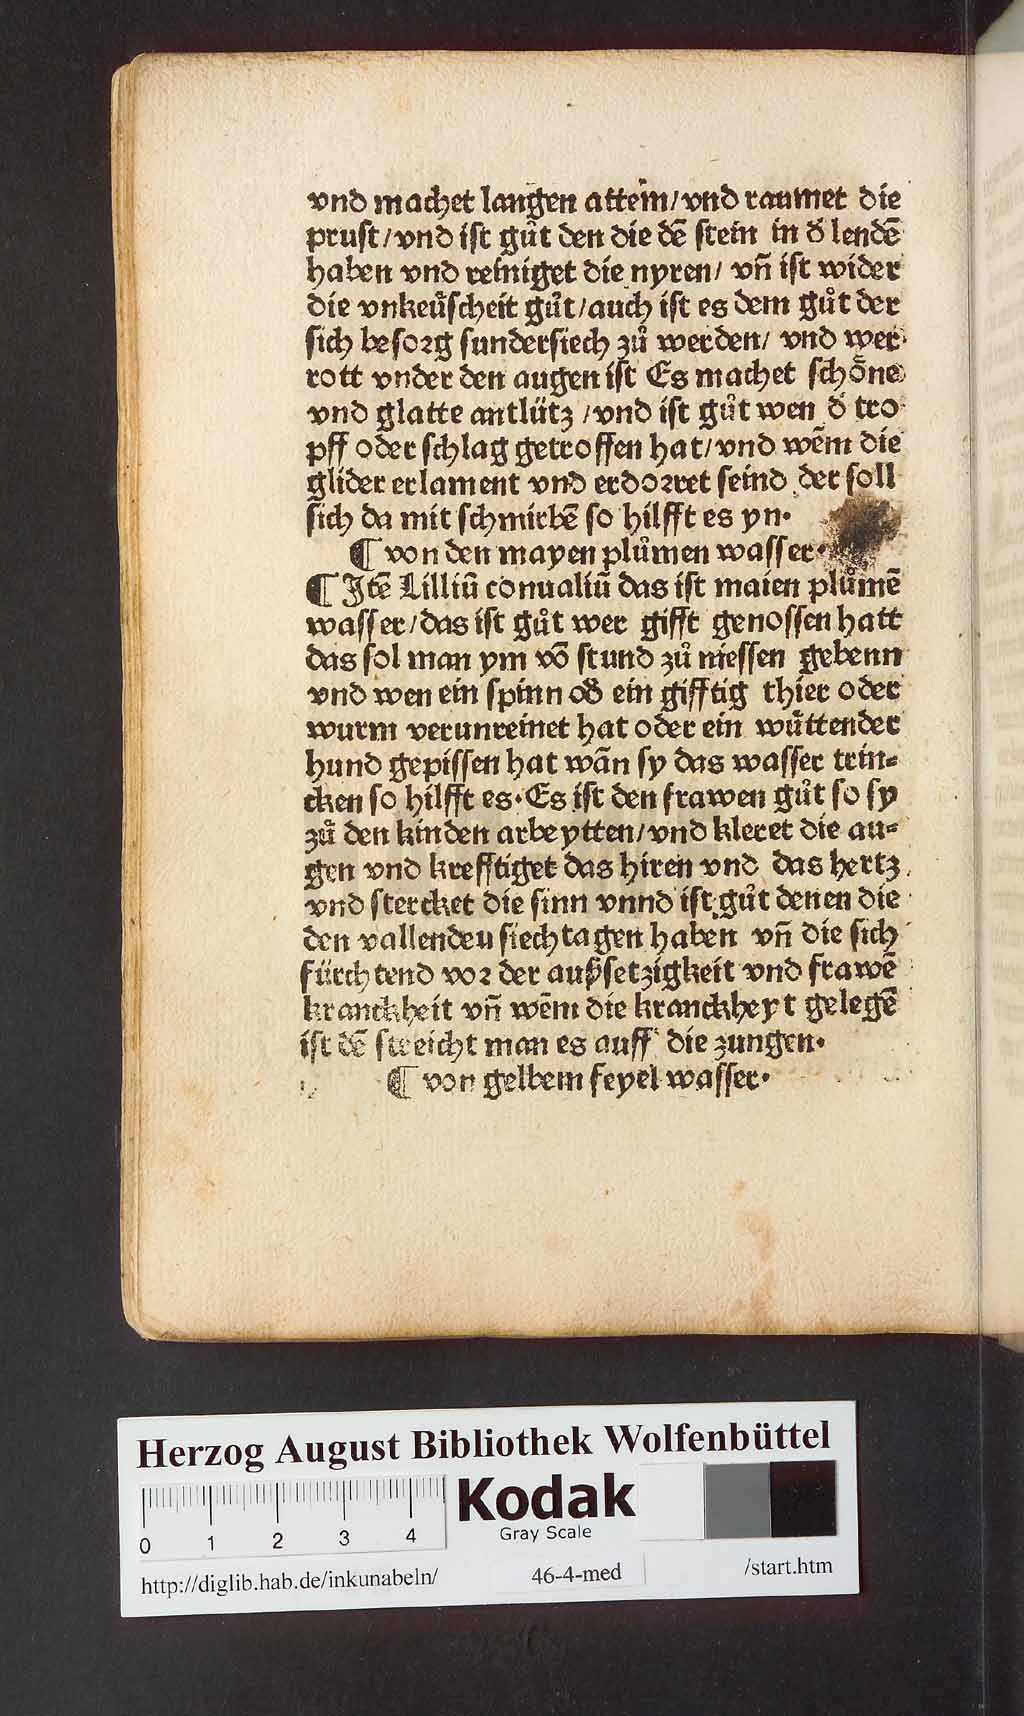 vnd machet langen attem/vnd raumet die
prust/vnd ist gůt den die dē stein in d̕ lendē
haben vnd reiniget die nyren/ vn̄ ist wider
die vnkeüscheit gůt/auch ist es dem gůt der
sich besorg sundersiech zů werden/ vnd wer
rott vnder den augen ist Es machet schöne
vnd glatte antlütz /vnd ist gůt wen d̕ tro
pff oder schlag getroffen hat/vnd wēm die
glider erlament vnd erdorret seind der soll
sich da mit schmirbē so hilfft es yn.
¶ von den mayen plůmen wasser.
¶ Itē Lilliū conualiū das ist maien plůmē
wasser/das ist gůt wer gifft genossen hatt
das sol man ym vō stund zů niessen gebenn
vnd wen ein spinn od̕ ein gifftig thier oder
wurm verunreinet hat oder ein wüttender
hund gepissen hat wān sy das wasser trin=
cken so hilfft es. Es ist den frawen gůt so sy
zů den kinden arbeytten/vnd kleret die au=
gen vnd krefftiget das hiren vnd das hertz
vnd stercket die sinn vnnd ist gůt denen die
den vallenden siechtagen haben vn̄ die sich
fürchtend vor der außsetzigkeit vnd frawē
kranckheit vn̄ wēm die kranckheyt gelegē
ist dē streicht man es auff die zungen.
¶ von gelbem feyel wasser.
Herzog August Bibliothek Wolfenbüttel
0 1 2 3 4
Kodak
Gray Scale
http://diglib.hab.de/inkunabeln/ 46-4-med /start.htm